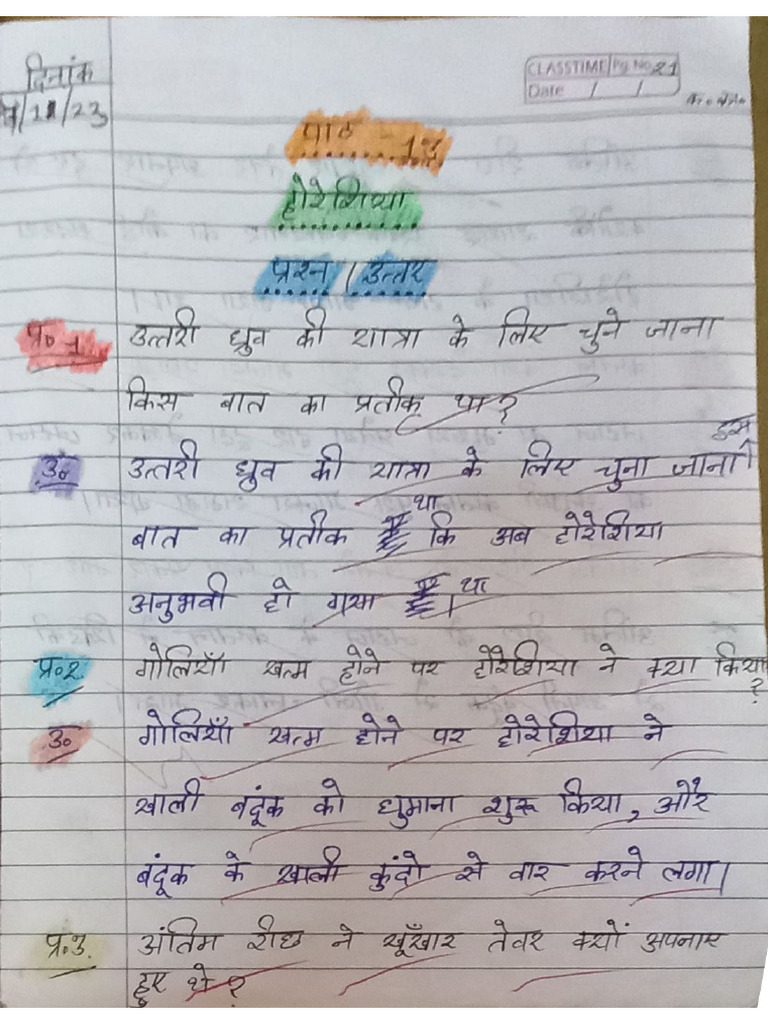 दिनांक
/11/23
CLASSTIME Pg No. 21
Date / /
पाठ -
होरेशिया
प्रश्न / उत्तर
प्र० 1 उत्तरी ध्रुव की यात्रा के लिए चुने जाना
किस बात का प्रतीक था?
उ० उत्तरी ध्रुव की यात्रा के लिए चुना जाना इस
बात का प्रतीक था कि अब होरेशिया
अनुभवी हो गया था।
प्र.2. गोलियाँ खत्म होने पर होरेशिया ने क्या किया?
उ० गोलियाँ खत्म होने पर होरेशिया ने
खाली बदूंक को घुमाना शुरू किया, और
बंदूक के खाली कुंदो से वार करने लगा।
प्र.3. अंतिम रीछ ने खूँखार तेवर क्यों अपनाए
हुए थे?